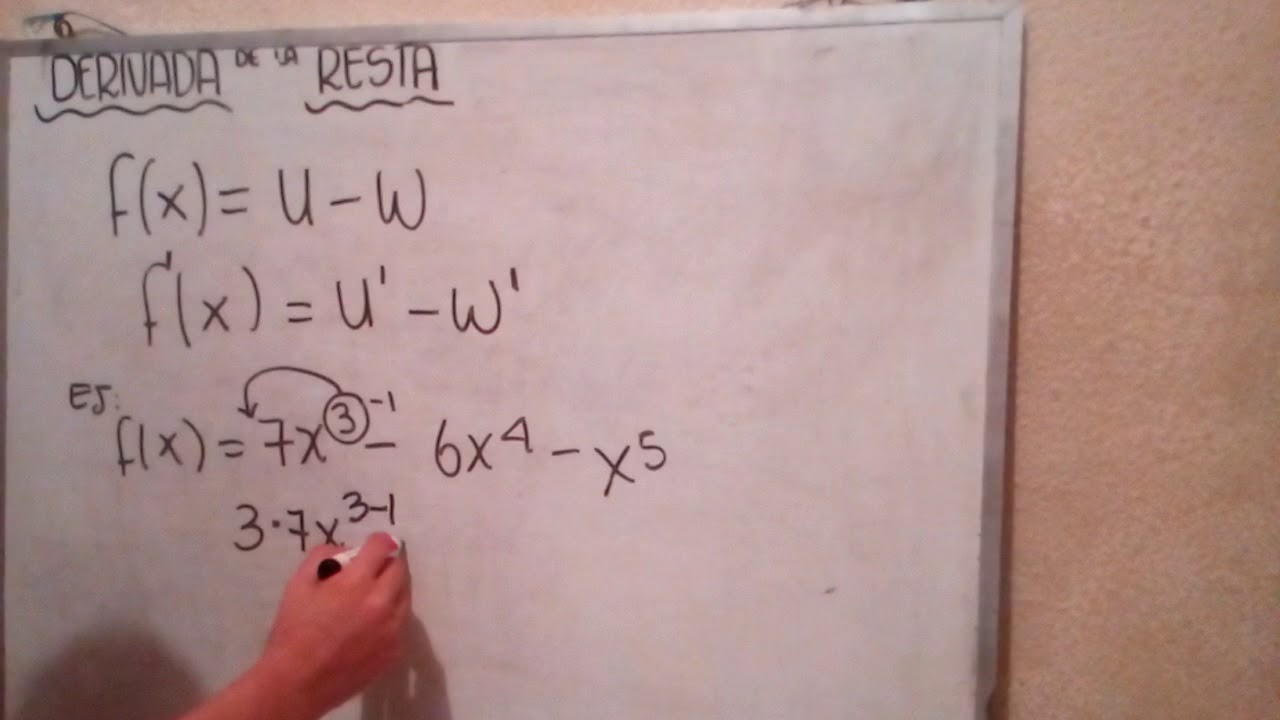 DERIVADA DE LA RESTA
f(x) = U - W
f'(x) = U' - W'
EJ:
f(x) = 7x³⁻¹ - 6x⁴ - x⁵
3·7x³⁻¹